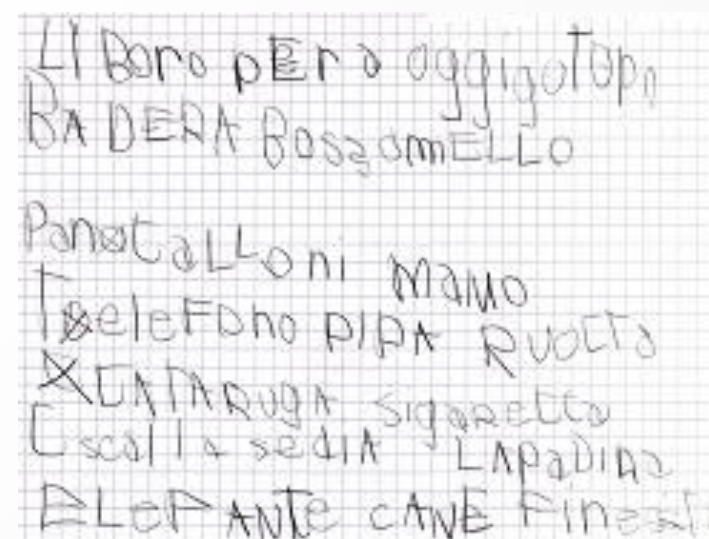 LI Boro pEra oggigoTopo
BA DERA BossomELLO
PanotaLLoni MaMO
TeleFono PIPA RUOtta
tATARUgA sigaRetta
scalla sedIA LAPaDIna
ELeFANTe CANE Finest